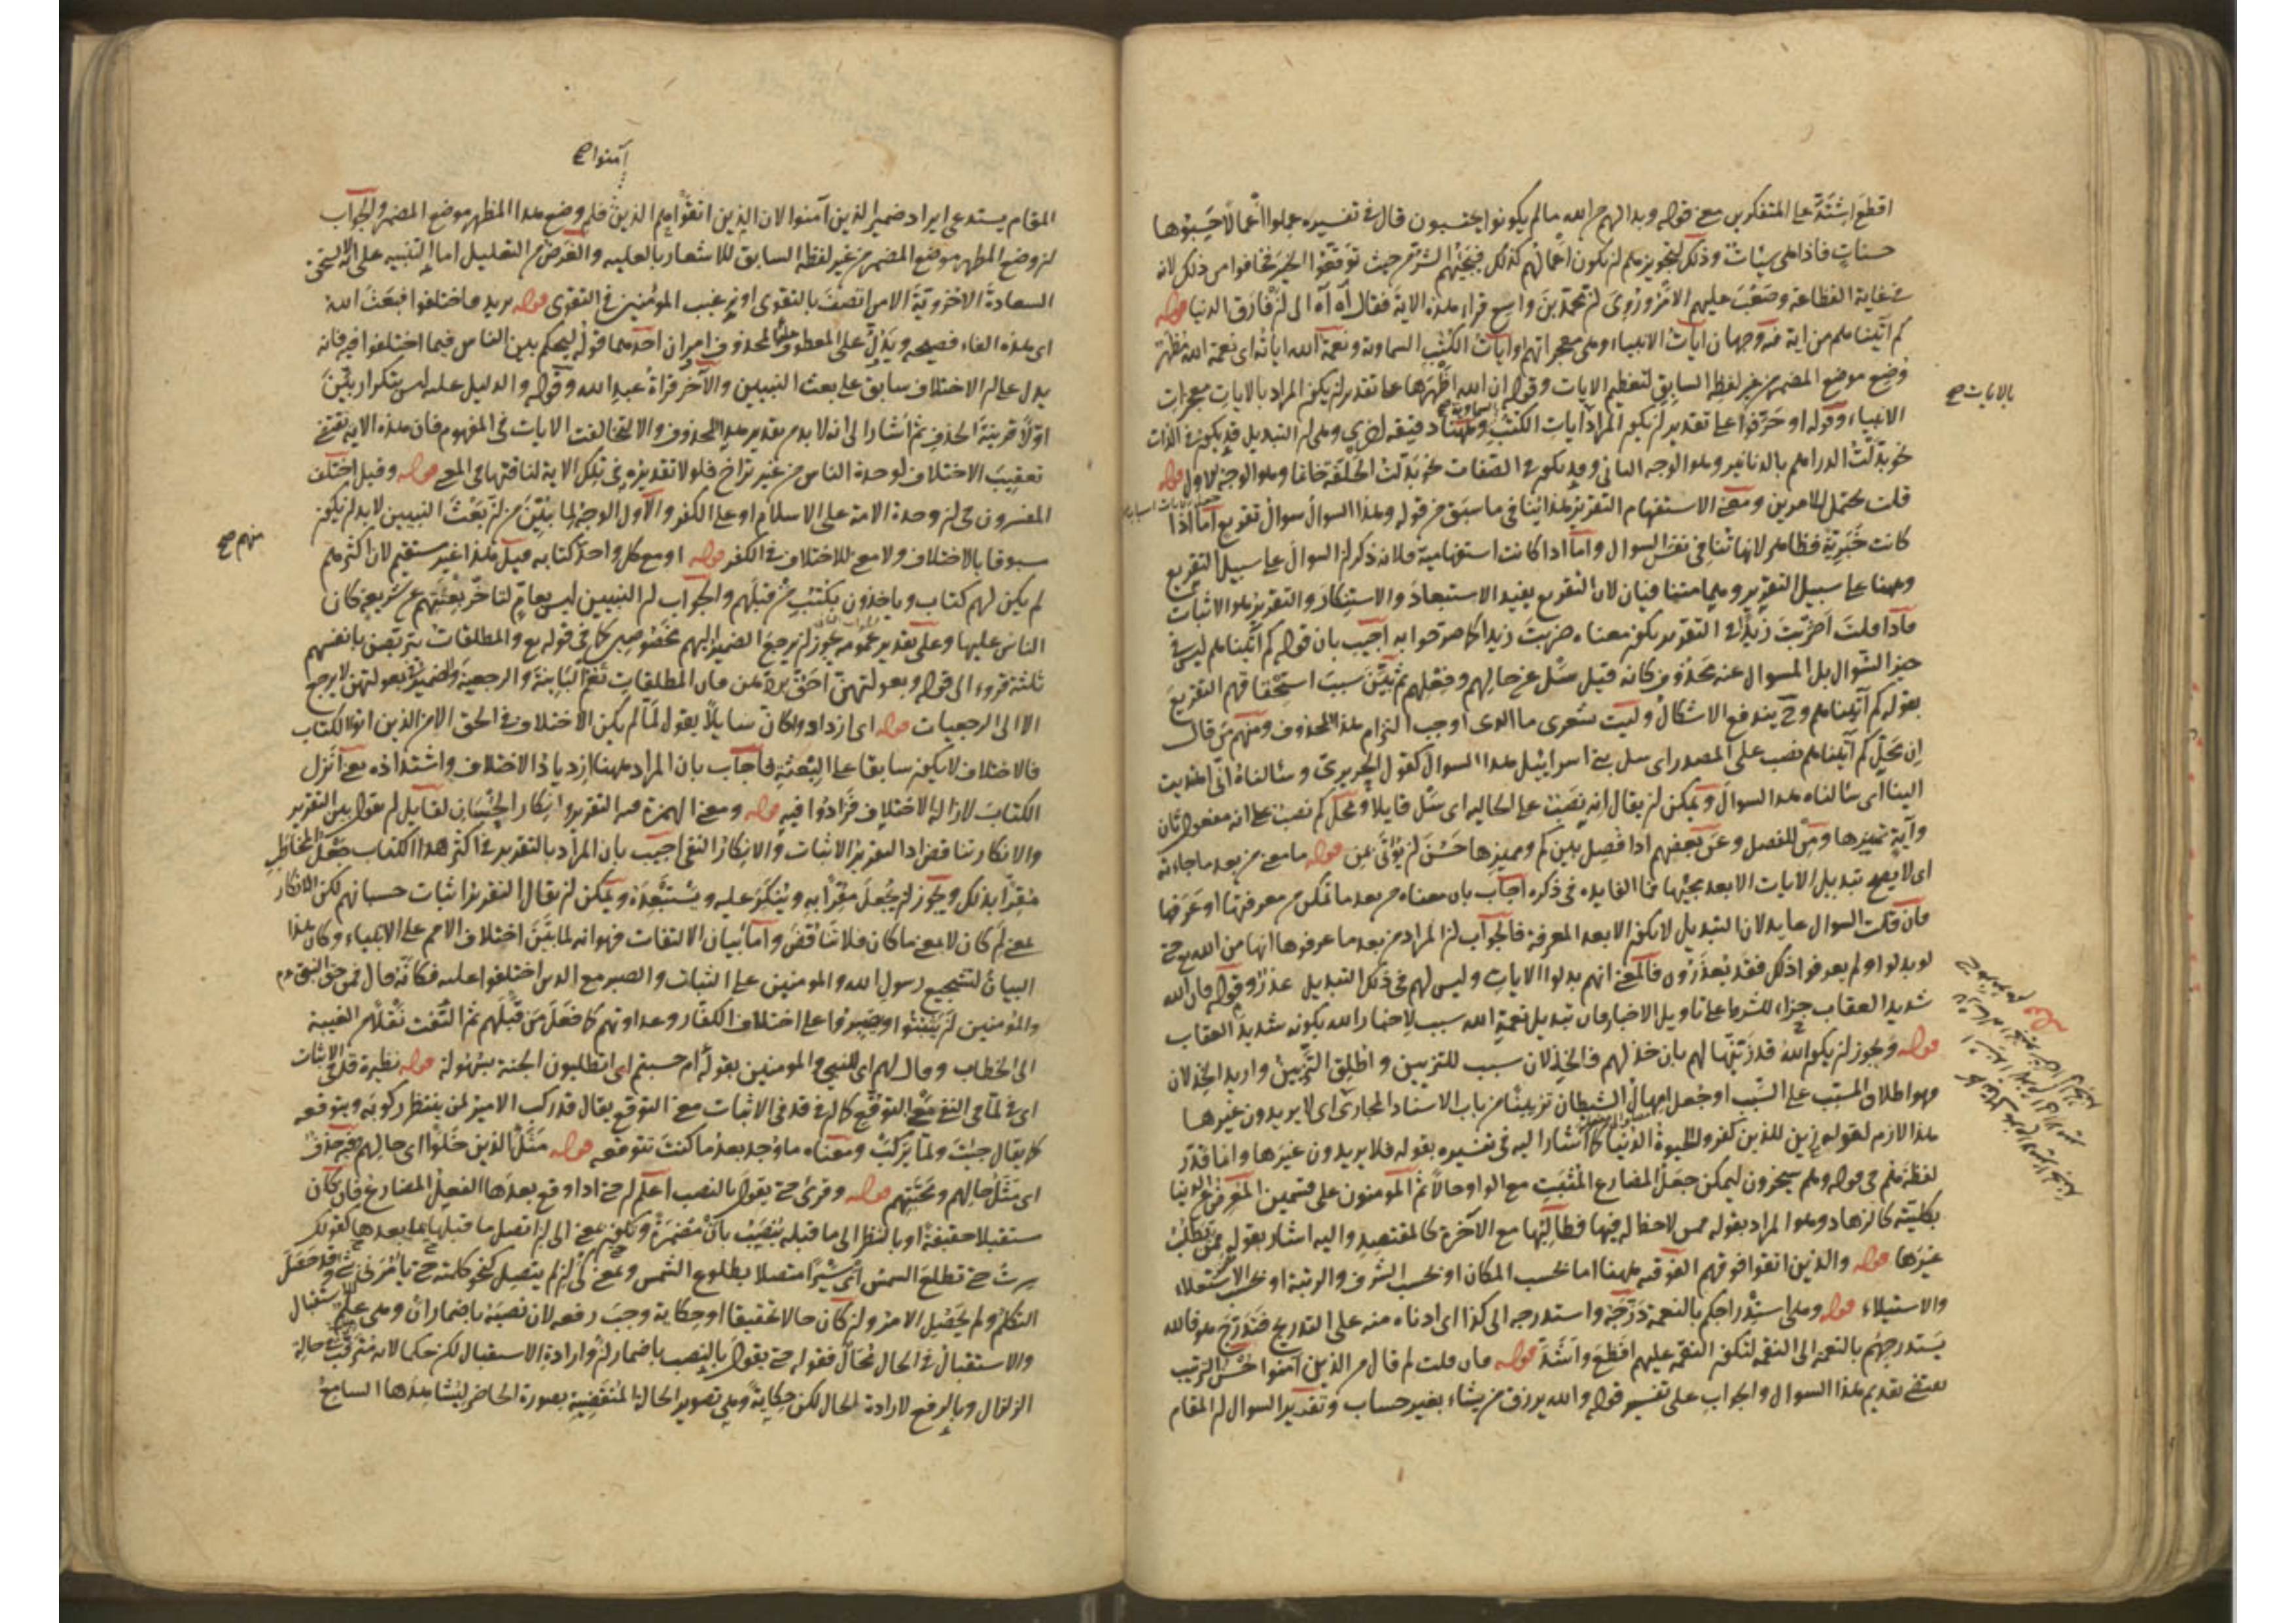 اقطع اشتدّ على المتفكرين معنى قوله وبدا لهم من الله ما لم يكونوا يحتسبون قال في تفسيره عملوا اعمالا حسبوها
حسنات فاذا هي سيئات وذلك لتجويزهم ان يكون اعمالهم كذلك فيجيئهم الشر من حيث توقعوا الخير فخافوا من ذلك لانه
في غاية الفظاعة وصعب عليهم الامر وروى ان محمد بن واسع قراء هذه الاية فقال آه آه الى ان فارق الدنيا قوله
كم آتيناهم من اية فيه وجهان ايات الانبياء وهي معجزاتهم او ايات الكتب السماوية ونعمة الله اياته اى نعمة الله مظهر
وضع موضع المضمر من غير لفظ السابق لتعظيم الايات وقوله ان الله اظهرها على تقدير ان يكون المراد بالايات معجزات
بالايات صح
الانبياء وقوله او حرفوا على تقدير ان يكون المراد ايات الكتب وههنا دقيقة اخرى وهي ان التبديل قد يكون في الذات
نحو بدلت الدراهم بالدنانير وهو الوجه الثاني وقد يكون في الصفات نحو بدلت الحلقة خاتما وهو الوجه الاول قوله
قلت يحتمل الامرين ومعنى الاستفهام التقرير هذا ينافي ما سبق من قوله وهذا السوال سوال تقريع اما اذا
كانت خبرية فظاهر لانها تنافي نفس السوال واما اذا كانت استفهامية فلانه ذكر ان السوال على سبيل التقريع
وههنا على سبيل التقرير وهما متنافيان لان التقريع يفيد الاستبعاد والاستنكار والتقرير هو الاثبات
فاذا قلت اضربت زيدا في التقرير يكون معناه ضربت زيدا كما صرحوا به اجيب بان قوله كم آتيناهم ليس في
حيز السوال بل المسوال عنه محذوف كانه قيل سل عن حالهم وفعلهم ثم بين سبب استحقاقهم التقريع
بقوله كم آتيناهم وح يندفع الاشكال وليت شعرى ما الذى اوجب التزام هذا المحذوف ومنهم من قال
ان محل كم آتيناهم نصب على المصدر اى سل بنى اسرائيل هذا السوال كقول الحريرى وسئالناه انى اهتديت
الينا اى سئالناه هذا السوال ويمكن ان يقال انه نصب على الحالية اى سل قايلا ومحل كم نصب على انه مفعول ثان
وآية تمييزها ومن للفصل وعن بعضهم اذا فصل بين كم ومميزها حسن ان يؤتى بمن قوله ما معنى من بعد ما جاءته
اى لا يصح تبديل الايات الا بعد مجيئها فما الفايده في ذكره اجاب بان معناه من بعد ما تمكن من معرفتها او عرفها
فان قلت السوال عايد لان التبديل لا يكون الا بعد المعرفة فالجواب ان المراد من بعد ما عرفوها انها من الله يع حتى
لو بدلوا ولم يعرفوا ذلك فقد يعذرون فالمعنى انهم بدلوا الايات وليس لهم في ذلك التبديل عذر وقوله فان الله
شديد العقاب جزاء للشرط على تاويل الاخبار فان تبديل نعمة الله سبب لاخبار الله بكونه شديد العقاب
قوله ويجوز ان يكون الله قد زينها لهم بان خذلهم فالخذلان سبب للتزيين واطلق التزيين واريد الخذلان
وهو اطلاق المسبب على السبب او جعل امهال الشيطان تزيينا من باب الاسناد المجازى اى لا يريدون غيرها
هذا لازم لقوله زين للذين كفروا الحيوة الدنيا كما اشار اليه في تفسيره بقوله فلا يريدون غيرها وانما قدر
لفظة هم في قوله وهم يسخرون ليمكن جعل المضارع المثبت مع الواو حالا ثم المومنون على قسمين المعرض عن الدنيا
بكليته كالزهاد وهو المراد بقوله ممن لاحظ له فيها فطالبها مع الآخرة كالمقتصد واليه اشار بقوله ممن يطلب
غيرها قوله والذين اتقوا فوقهم الفوقية ههنا اما بحسب المكان او بحسب الشرف والرتبة او بحسب الاستعلاء
والاستيلاء قوله وهي استدراجكم بالنعمة درجه واستدرجه الى كذا اى ادناه منه على التدريج فتدرج هو فالله
يستدرجهم بالنعمة الى النقمة لتكون النقمة عليهم افظع واشد قوله فان قلت لم قال من الذين آمنوا حسن الترتيب
يقتضى تقديم هذا السوال والجواب على تفسير قوله والله يرزق من يشاء بغير حساب وتقدير السوال ان المقام
آمنوا صح
المقام يستدعى ايراد ضمير الذين آمنوا لان الذين اتقوا هم الذين فلم وضع هذا المظهر موضع المضمر والجواب
ان وضع المظهر موضع المضمر من غير لفظ السابق للاشعار بالعلية والغرض من التعليل اما التنبيه على انه لا يستحق
السعادة الاخروية الا من اتصف بالتقوى او ترغيب المومنين في التقوى قوله يريد فاختلفوا فبعث الله
اى هذه الفاء فصيحه ويدل على المعطوف عليه المحذوف امران احدهما قوله ليحكم بين الناس فيما اختلفوا فيه فانه
يدل على ان الاختلاف سابق على بعث النبيين والآخر قراة عبد الله وقوله والدليل عليه ليس بتكرار بين
اولا قرينة الحذف ثم اشار الى انه لا بد من تقدير هذا المحذوف والا لتخالفت الايات في المفهوم فان هذه الاية تقتضى
تعقيب الاختلاف لوحدة الناس من غير تراخ فلولا تقديره في تلك الاية لنافتها في المعنى قوله وقيل اختلف
المفسرون في ان وحدة الامة على الاسلام او على الكفر والاول الوجه لما بين من ان بعث النبيين لا بد ان يكون
مسبوقا بالاختلاف ولا معنى للاختلاف في الكفر قوله او مع كل واحد كتابه قيل هذا غير مستقيم لان اكثرهم
منهم صح
لم يكن لهم كتاب وياخذون بكتب من قبلهم والجواب ان النبيين ليس بعام لتاخر بعثتهم عن شريعة كان
الناس عليها وعلى تقدير عمومه يجوز ان يرجع الضمير اليهم مخصوصين كما في قوله يع والمطلقات يتربصن بانفسهن
ثلثة قروء الى قوله وبعولتهن احق بردهن فان المطلقات تعم الباينة والرجعية والضمير في بعولتهن لا يرجع
الا الى الرجعيات قوله اى ازداد وكان سايلا يقول لما لم يكن الاختلاف في الحق الا من الذين اوتوا الكتاب
فالاختلاف لا يكون سابقا على البعثة فاجاب بان المراد ههنا ازدياد الاختلاف واشتداده يعنى انزل
الكتاب لازالة الاختلاف فزادوا فيه قوله ومعنى الهمزة فيه التقرير وانكار الحسبان لقايل ان يقول بين التقرير
والانكار تناقض اذ التقرير الاثبات والانكار النفى اجيب بان المراد بالتقرير في اكثر هذا الكتاب جعل المخاطب
مقرا بذلك ويجوز ان يجعل مقرا به وينكر عليه ويستبعده ويمكن ان يقال التقرير اثبات حسبانهم لكن الانكار
بمعنى لم كان لا بمعنى ما كان فلا تناقض واما بيان الالتفات فهو انه لما بين اختلاف الامم على الانبياء وكان هذا
البيان لتشجيع رسول الله والمومنين على الثبات والصبر مع الذين اختلفوا عليه فكانه قال فمن حق النبى عم
والمومنين ان يتثبتوا ويصبروا على اختلاف الكفار وعداوتهم كما فعل من قبلهم ثم التفت نقلا من الغيبة
الى الخطاب وقال لهم اى للنبى والمومنين بقوله ام حسبتم اى اتطلبون الجنة بسهولة قوله نظيرة قد في الاثبات
اى في لما في النفى معنى التوقع كما ان في قد في الاثبات معنى التوقع يقال قد ركب الامير لمن ينتظر ركوبه ويتوقعه
كما يقال جيت ولما يركب ومعناه ما وجد بعد ما كنت تتوقعه قوله مثل الذين خلوا اى حالهم فيه حذف
اى مثل حالهم ومحنتهم قوله وقرئ حتى يقول بالنصب اعلم ان حتى اذا وقع بعدها الفعل المضارع فان كان
مستقبلا حقيقة او بالنظر الى ما قبله ينصب بان مضمرة ويكون بمعنى الى ان اتصل ما قبلها بما بعدها كقولك
سرت حتى تطلع الشمس اى سيرا متصلا بطلوع الشمس وبمعنى كى ان لم يتصل نحو كلمته حتى يامرنى بشئ وقد حصل
التكلم ولم يحصل الامر وان كان حالا تحقيقا او حكاية وجب رفعه لان نصبه باضمار ان وهي علم الاستقبال
والاستقبال في الحال محال فقوله حتى يقول بالنصب باضمار ان وارادة الاستقبال لكن حكما لانه مترقب حالة
الزلزال وبالرفع لارادة الحال لكن حكاية وهي تصوير الحالة المنقضية بصورة الحاضر ليشاهدها السامع